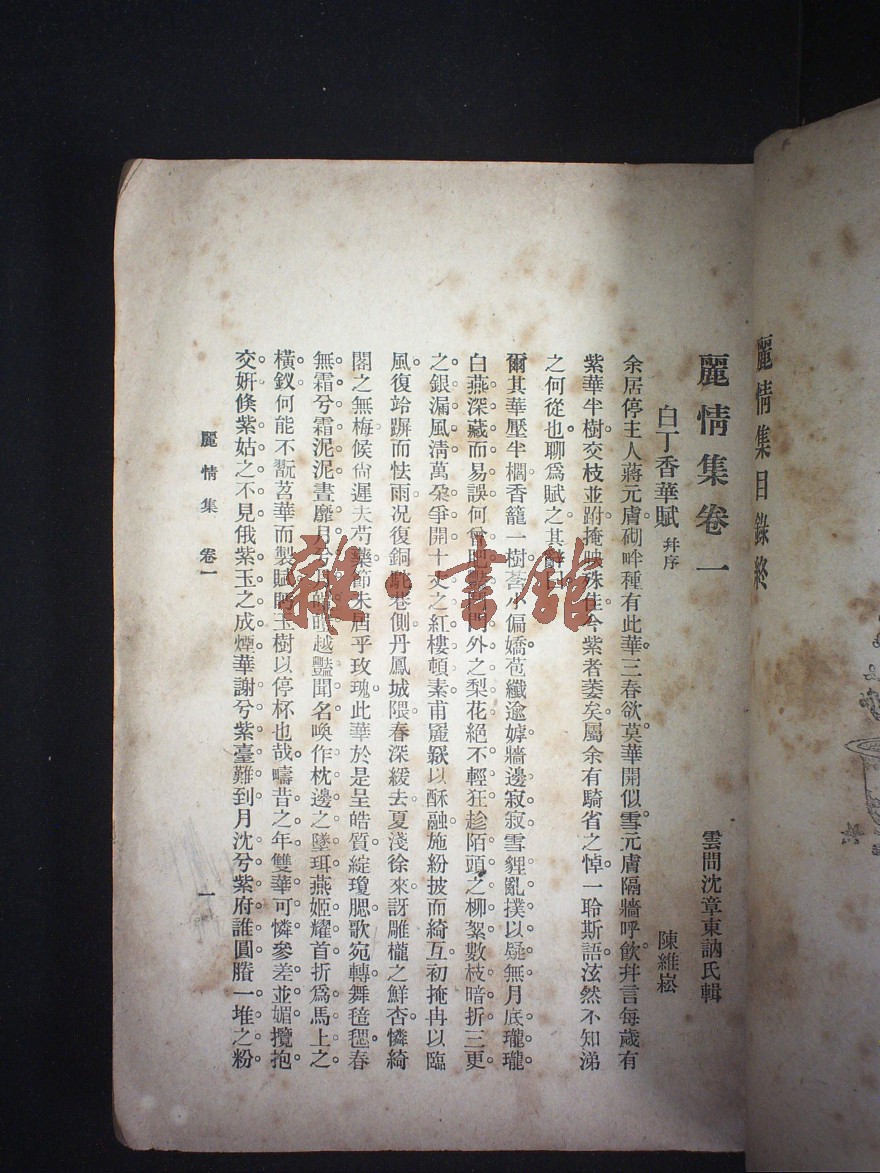 麗情集目錄終
麗情集卷一
雲間沈章東訥氏輯
白丁香華賦 幷序 陳維崧
余居停主人蔣元膚砌畔種有此華三春欲莫華開似雪元膚隔牆呼飮幷言每歲有
紫華半樹交枝並跗掩映殊佳今紫者萎矣屬余有騎省之悼一聆斯語泫然不知涕
之何從也聊爲賦之其辭曰
爾其華壓半欄香籠一樹萼小偏嬌苞纖逾嫭牆邊寂寂雪貍亂撲以疑無月底瓏瓏
白燕深藏而易誤何曾門外之梨花絕不輕狂趁陌頭之柳絮數枝暗折三更
之銀漏風淸萬朶爭開十丈之紅樓頓素甫麗㱊以酥融施紛披而綺互初掩冉以臨
風復竛竮而怯雨况復銅駝巷側丹鳳城隈春深緩去夏淺徐來訝雕櫳之鮮杏憐綺
閣之無梅候尙遲夫芍藥節未屆乎玫瑰此華於是呈皓質綻瓊腮歌宛轉舞毰毸春
無霜兮霜泥泥晝靡月兮月皚皚越豔聞名喚作枕邊之墜珥燕姬耀首折爲馬上之
橫釵何能不翫茗華而製賦閗玉樹以停杯也哉疇昔之年雙華可憐參差並媚攬抱
交妍倏紫姑之不見俄紫玉之成煙華謝兮紫臺難到月沈兮紫府誰圓賸一堆之粉
麗情集 卷一
一
雜·書館